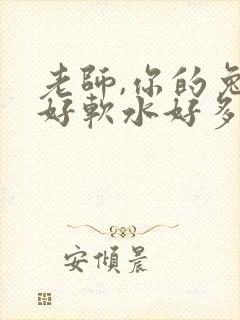 老師,你的兔
好軟水好多
安傾晨